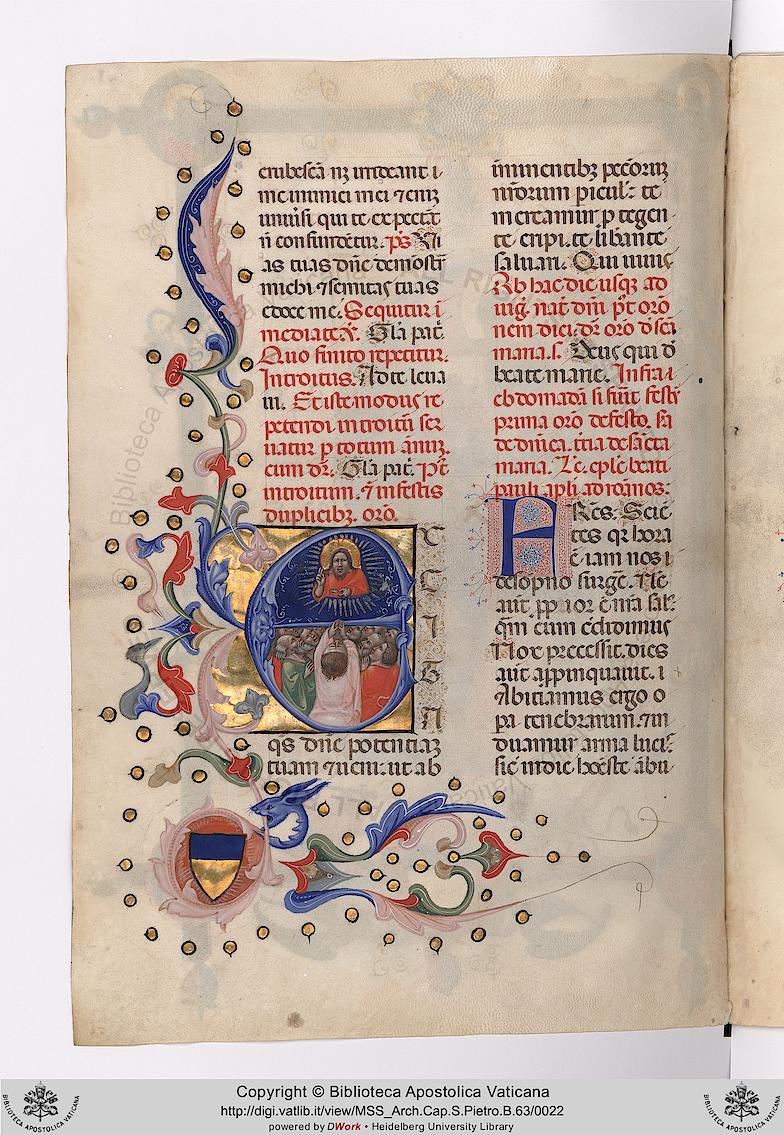 erubescā nꝫ irrideant i-
me inimici mei ⁊ eniꝫ
uniūsi qui te expectāt
nō confundētur. p̄s Vi
as tuas dn̄e demōstā
michi ⁊ semitas tuas
edoce me. Sequitur ī
mediate. ꝟ. Gl̄a pat̄.
Quo finito repetitur.
Introitus. Ad te leua
ui. Et iste modus re
petendi introitū ser
uatur p totum ānuꝫ.
cum dr̄. Gl̄a pat̄. p̄t
introitum. ⁊ in festis
duplicibꝫ. oro.
E
X
C
I
T
A
qs dn̄e potentiaꝫ
tuam ⁊ ueni. ut ab
īminentibꝫ pecc̄oruꝫ
nr̄orum picul': te
mereamur ptegen-
te eripi. te lib̄ante
saluari. Qui uiuis
Ab hac die usqꝫ ad
uig. nat̄. dn̄i p̄t orō
nem diei. dr̄ orō d̄ sc̄a
maria. s. Deus qui d̄
beate marie. Infra i
ebdomadā si fūit festū
prima orō de festo. sā
de dn̄ica. t̄tia de sancta
maria. L̄c. ep̄le beati
pauli ap̄li ad romanos.
FRes. Sciē
tes qꝛ hora
ē iam nos i
de sopno surge. Nc̄
aut̄. ppior ē nr̄a sal'.
q̄m cum c̄didimus
Nox precessit. dies
aūt appinquauit. i
Abitiamus ergo o
pa tenebrarum. ⁊ in
duamur arma luci'.
sic in die hoēste ābu
Copyright © Biblioteca Apostolica Vaticana
http://digi.vatlib.it/view/MSS_Arch.Cap.S.Pietro.B.63/0022
powered by DWork • Heidelberg University Library
BIBLIOTECA APOSTOLICA VATICANA
BIBLIOTECA APOSTOLICA VATICANA